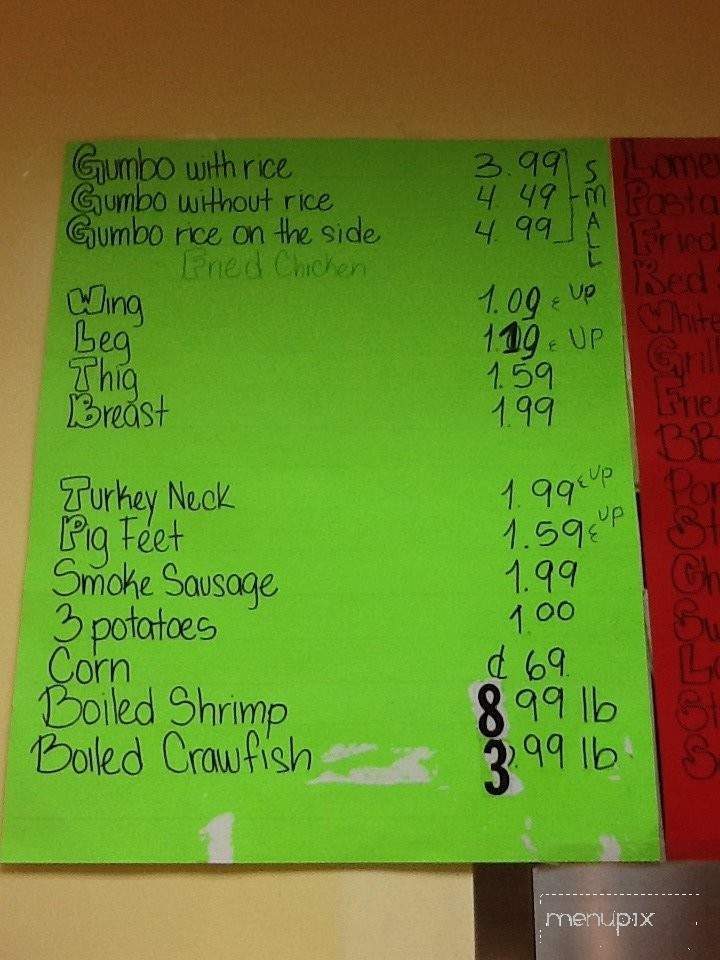 Gumbo with rice 3.99
Gumbo without rice 4.49
Gumbo rice on the side 4.99
SMALL
Fried Chicken
Wing 1.09 & UP
Leg 1.19 & UP
Thig 1.59
Breast 1.99
Turkey Neck 1.99 & UP
Pig Feet 1.59 & UP
Smoke Sausage 1.99
3 potatoes 1.00
Corn ¢ 69
Boiled Shrimp 8.99 lb
Boiled Crawfish 3.99 lb
Lome
Pasta
Fried
Red
White
Grill
Frie
BB
Por
St
Ch
menupix